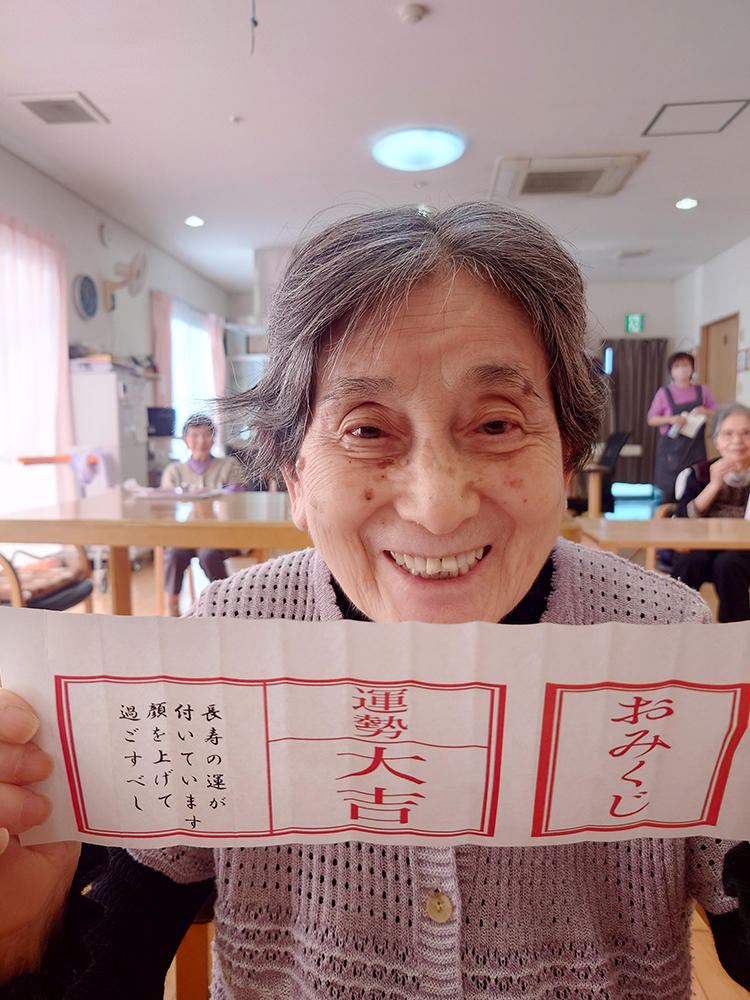 おみくじ
運勢
大吉
長寿の運が
付いています
顔を上げて
過ごすべし